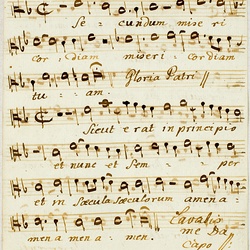 se- cundum mise ri
cor- diam miseri cordiam
tu- am. Gloria Patri
Sicut erat in principio
et nunc et sem- per
et in Sæcula Sæculorum amena
mena mena- men.